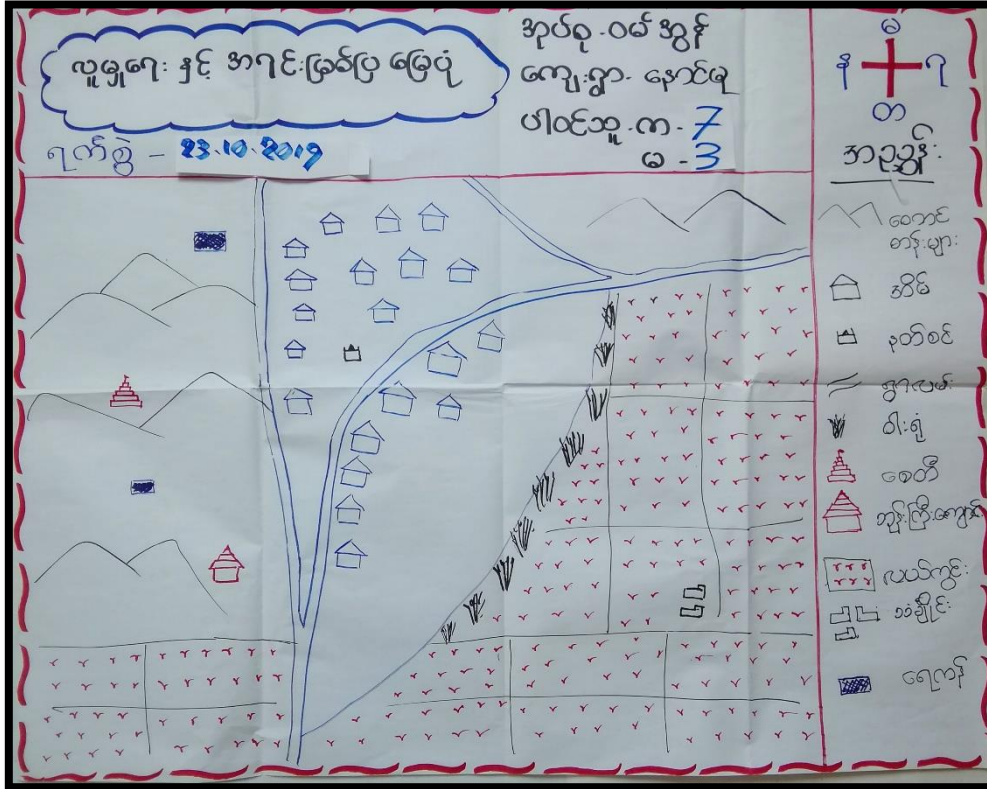 လူမှုရေး နှင့် အရင်းမြစ်ပြ မြေပုံ
ရက်စွဲ - 23.10.2019
အုပ်စု - ဝမ်အွန်
ကျေးရွာ - နောင်မု
ပါဝင်သူ - ကျ - 7
မ - 3
မ
န ရ
တ
အညွှန်း
တောင်
တန်းများ
အိမ်
နတ်စင်
ရွာလမ်း
ဝါးရုံ
စေတီ
ဘုန်းကြီးကျောင်း
လယ်ကွင်း
သင်္ချိုင်း
ရေကန်